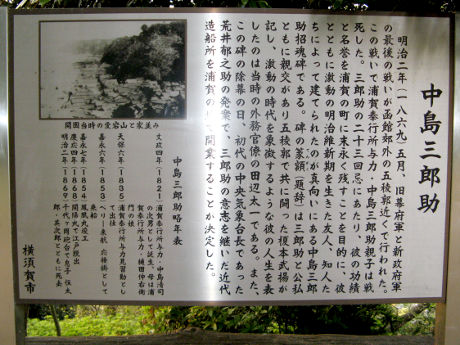 中島三郎助
明治二年(一八六九)五月、旧幕府軍と新政府軍
の最後の戦いが函館郊外の五稜郭近くで行われた。
この戦いで浦賀奉行所与力・中島三郎助親子は戦
死した。三郎助の二十三回忌にあたり、彼の功績
と名誉を浦賀の町に末永く残すことを目的に、彼
とともに激動の明治維新期を生きた友人、知人た
ちによって建てられたのが真向いにある中島三郎
助招魂碑である。碑の篆額(題辞)は三郎助と公私
ともに親交があり五稜郭で共に闘った榎本武揚が
記し、激動の時代を象徴するような彼の人生を表
したのは当時の外務官僚の田辺太一である。また、
この碑の除幕の日、初代の中央気象台長であった
荒井郁之助の発案で、三郎助の意志を継いだ近代
造船所を浦賀の地で開業することが決定した。
開園当時の愛宕山と家並み
中島三郎助略年表
文政四年(1821)浦賀奉行所与力、中島清司
の次男として誕生、母は浦
賀奉行所与力・樋田仲右衛
門の娘
天保六年(1835)浦賀奉行所与力見習勤とし
て出仕
嘉永六年(1853)ペリー来航 応接掛として
乗船
嘉永七年(1854)鳳凰丸竣工
慶応四年(1868)開陽丸で江戸脱出
明治二年(1869)千代ヶ岡砲台で息子・恒太
郎・英次郎とともに戦死
横須賀市